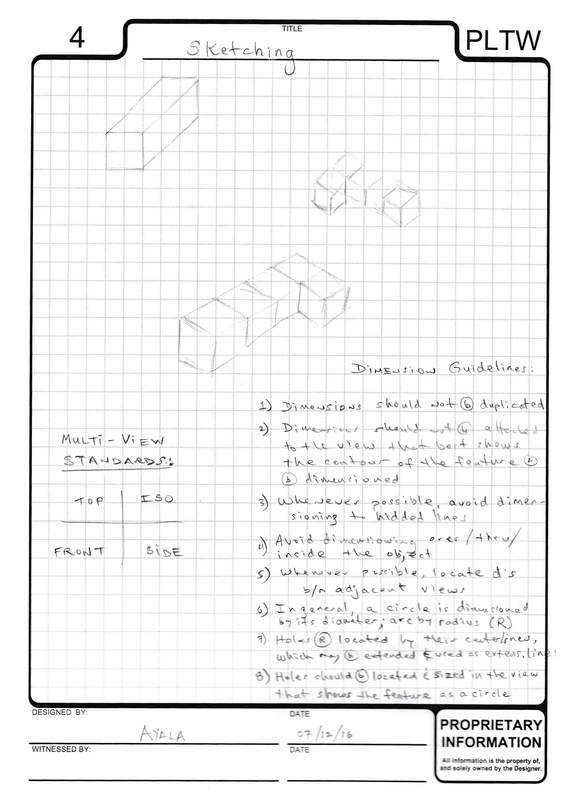 4
TITLE
Sketching
PLTW
DIMENSION Guidelines:
1) Dimensions should not ⓑ duplicated
2) Dimensions should attached
to the view that best shows
the contour of the feature
ⓑ dimensioned
3) Whenever possible, avoid dimen-
sioning to hidded lines
4) Avoid dimensioning over/thru/
inside the object
5) Whenever possible, locate d's
b/n adjacent views
6) In general, a circle is dimensioned
by its diameter; arc by radius (R)
7) Holes Ⓡ located by their center lines,
which may ⓑ extended & used as extens. lines
8) Holes should ⓑ located & sized in the view
that shows the feature as a circle
MULTI-VIEW
STANDARDS:
TOP ISO
FRONT SIDE
DESIGNED BY:
AYALA
DATE
07/12/16
WITNESSED BY:
DATE
PROPRIETARY
INFORMATION
All information is the property of,
and solely owned by the Designer.